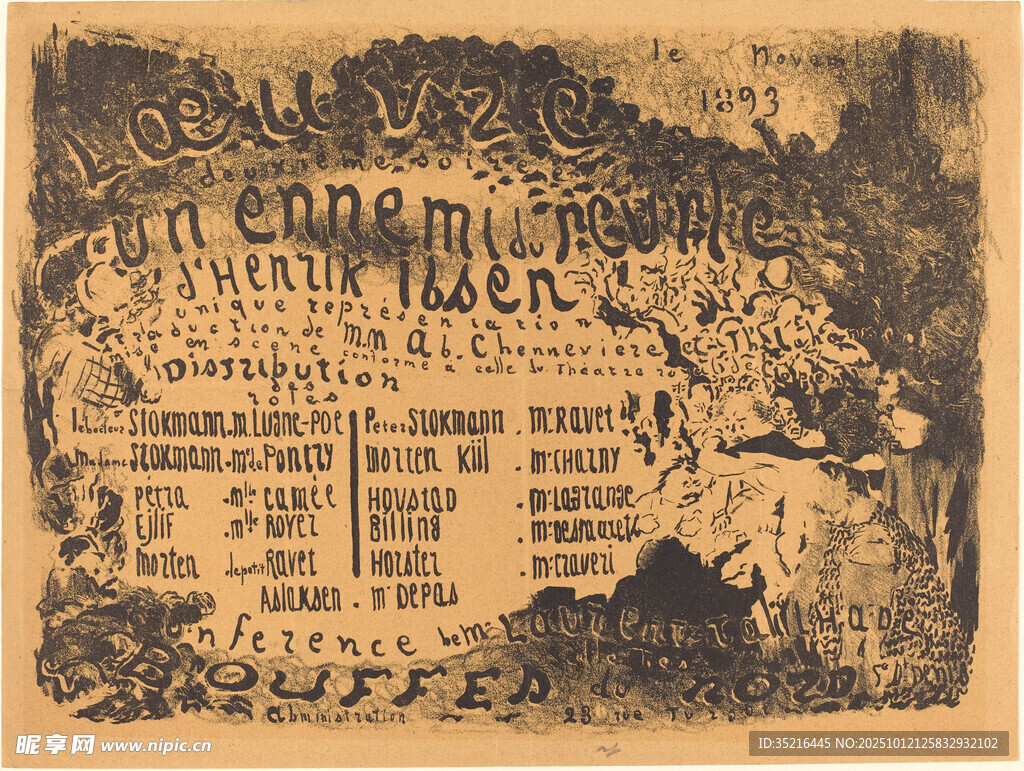 le Novemb
1893
L'Œuvre
deuxième soirée
un ennemi du peuple
d'Henrik Ibsen
unique représentation
traduction de M.M Ab. Chenneviere et
mise en scene conforme à celle du Théatre royal de
Distribution
des
roles
le docteur Stokmann . m. Lugne-Poe
Peter Stokmann . Mr Ravet
Madame Stokmann . me de Pontry
Morten Kiil . mr Charny
pétra . mlle camée
Hovstad . Mr Lagrange
Ejlif . mlle Royer
Billing . Mr Desmarets
Morten . le petit Ravet
Horster . Mr Craveri
Aslaksen . mr Depas
nference de Mr Laurent Tailhade
Bouffes du Nord
St Denis
administration 23 rue Turgot
昵享网 www.nipic.cn
ID:35216445 NO:20251012125832932102